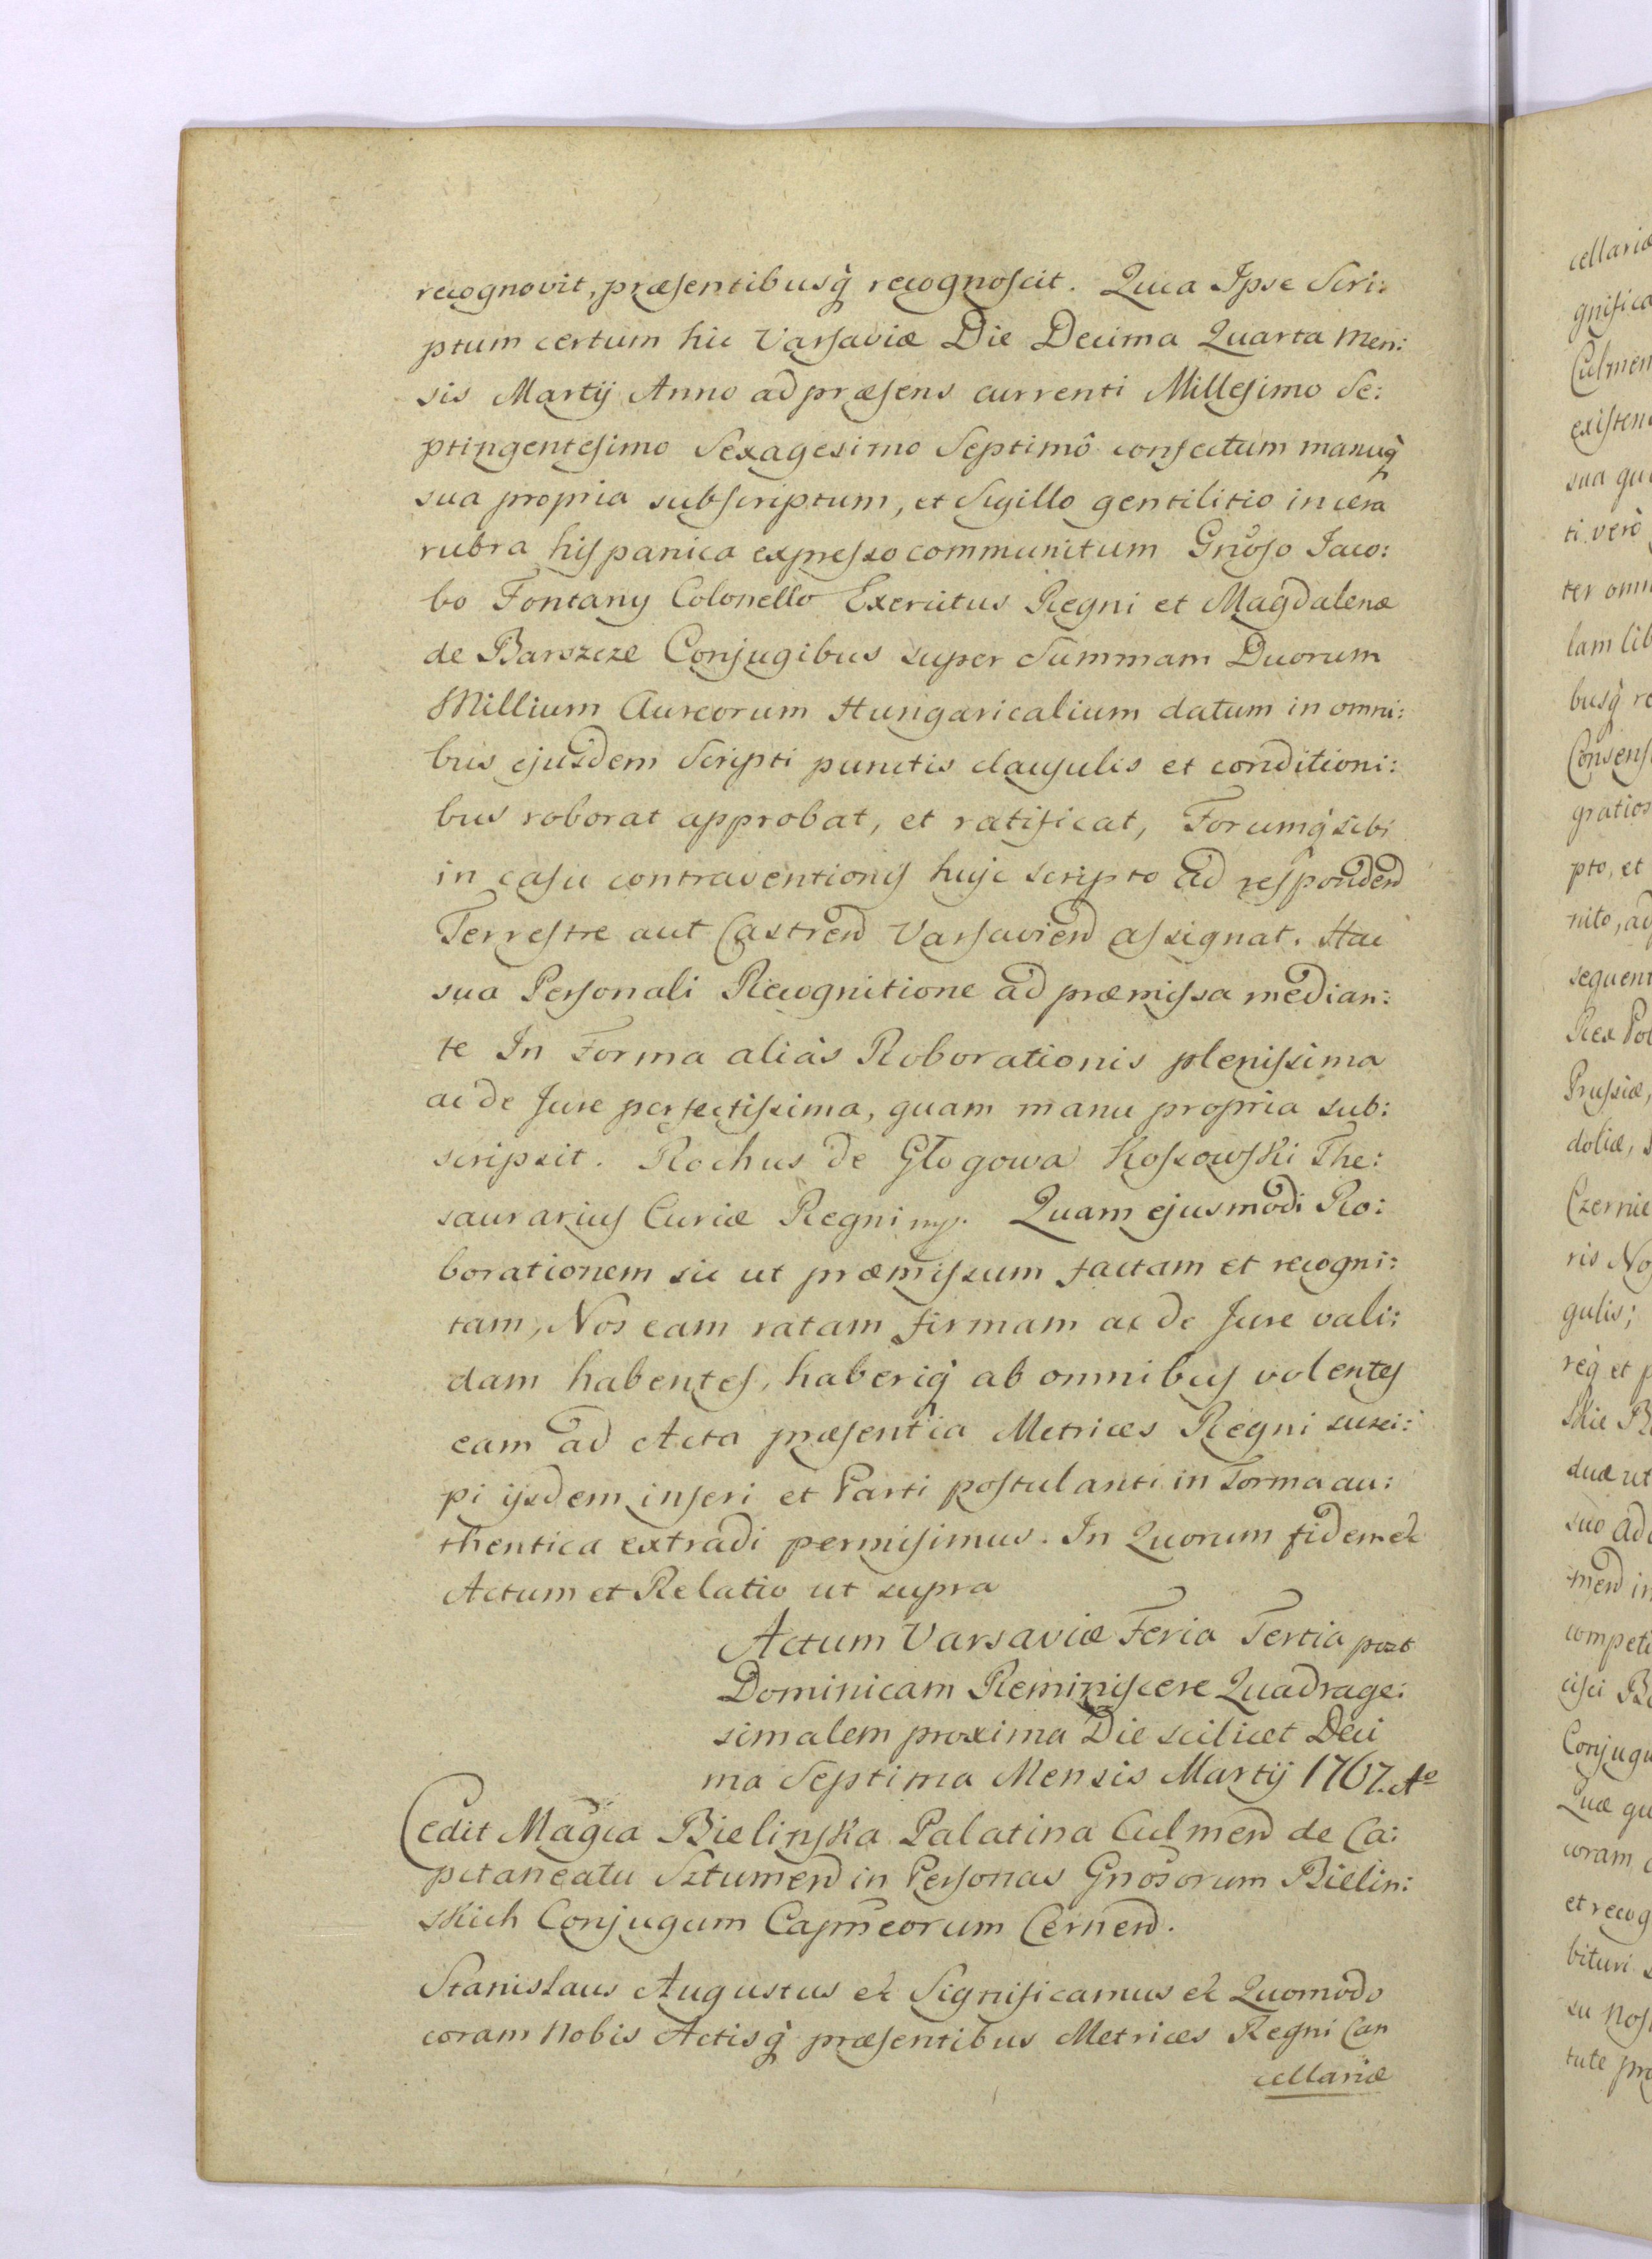 recognovit, præsentibusq̀ recognoscit. Quia Ipse Scri:
ptum certum hic Varsaviæ Die Decima Quarta Men:
sis Martij Anno ad præsens currenti Millesimo Se:
ptingentesimo Sexagesimo Septimô confectum manuq̀
sua propria subscriptum, et Sigillo gentilitio in cera
rubra hispanica expresso communitum Gnoso Jaco:
bo Fontany Colonello Exercitus Regni et Magdalenæ
de Barszcze Conjugibus super Summam Duorum
Millium Aureorum Hungaricalium datum in omni:
bus ejusdem Scripti punctis clausulis et conditioni:
bus roborat approbat, et ratificat, Forumq̀ sibi
in casu contraventionis huic scripto ad responden
Terrestre aut Castren Varsavien assignat. Hac
sua Personali Recognitione ad præmissa median:
te In Forma aliàs Roborationis plenissima
ac de Jure perfectissima, quam manu propria sub:
scripsit. Rochus de Głogowa Kossowski The:
saurarius Curiæ Regni mp. Quam ejusmodi Ro:
borationem sic ut præmissum factam et recogni:
tam, Nos eam ratam firmam ac de Jure vali:
dam habentes, haberiq̀ ab omnibus volentes
eam ad Acta præsentia Metrices Regni susci:
pi ijsdem inseri et Parti postulanti in Forma au:
thentica extradi permisimus. In Quorum fidem &
Actum et Relatio ut supra
Actum Varsaviæ Feria Tertia post
Dominicam Reminiscere Quadrage:
simalem proxima Die scilicet Deci
ma Septima Mensis Martij 1767. Ao
Cedit Magca Bielinska Palatina Culmen de Ca:
pitaneatu Sztumen in Personas Gnosorum Bielin:
skich Conjugum Capneorum Cernen.
Stanislaus Augustus & Significamus & Quomodo
coram Nobis Actisq̀ præsentibus Metrices Regni Can
cellariæ
cellariæ
gnifica
Culmen
existen
sua
ti verò
ter omn
lam lib
busq̀ re
Consens
gratios
pto, et
nito, ad
sequent
Rex Pol
Prussiæ,
doliæ, S
Czernie
ris No
gulis;
req̀ et p
skie B
duæ ut
suo ad
men in
compet
cisci B
Conjugu
Quæ qu
coram
et recog
bituri
su Nos
tute pr